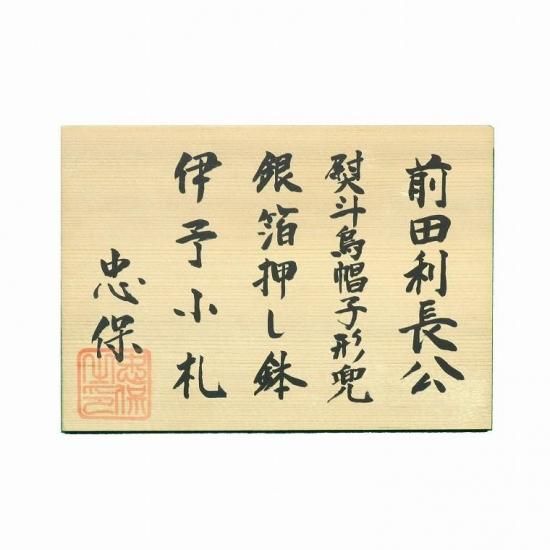 前田利長公
熨斗烏帽子形兜
銀箔押し鉢
伊予小札
忠保